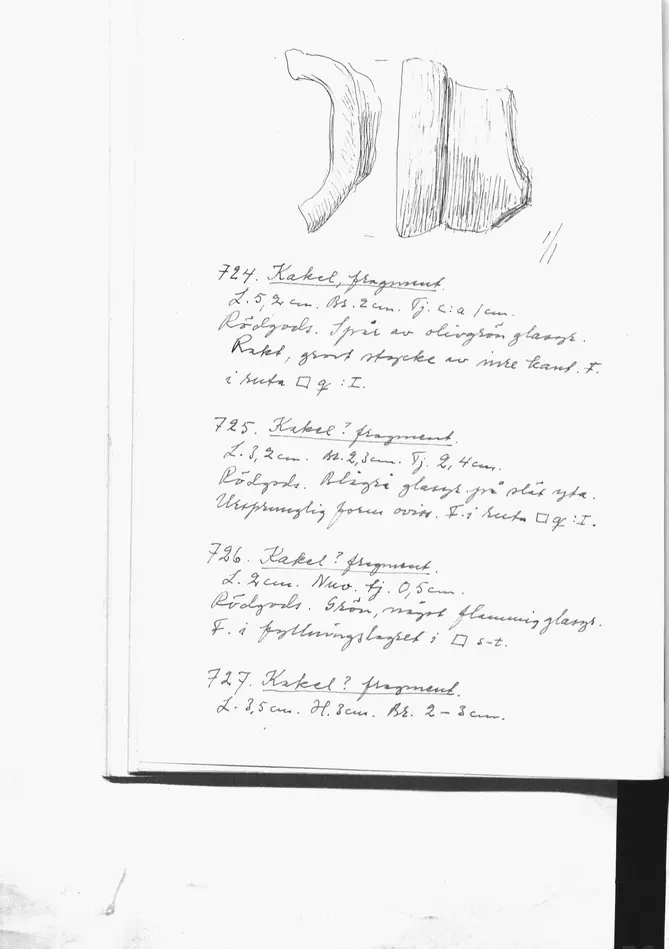 1/1
724. Kakel, fragment.
L. 5,2 cm. Br. 2 cm. Tj. c:a 1 cm.
Rödgods. Spår av olivgrön glasyr.
Rakt, grovt stycke av inre kant. F.
i ruta □ q : I.
725. Kakel? fragment.
L. 3,2 cm. Br. 2,3 cm. Tj. 2,4 cm.
Rödgods. Blågrå glasyr på slät yta.
Ursprunglig form oviss. F. i ruta □ q : I.
726. Kakel? fragment.
L. 2 cm. Nuv. tj. 0,5 cm.
Rödgods. Grön, något flammig glasyr.
F. i fyllningslagret i □ s-t.
727. Kakel? fragment.
L. 3,5 cm. H. 3 cm. Br. 2 – 3 cm.